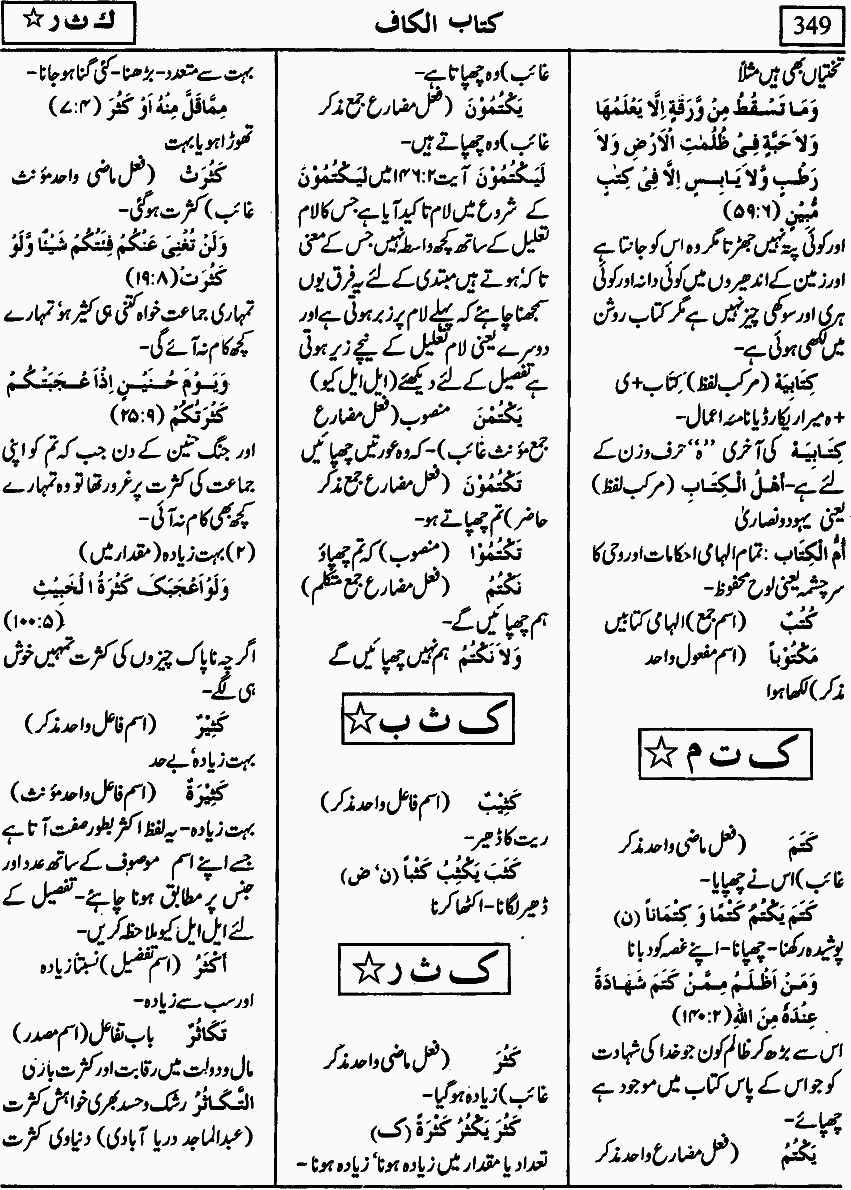 349
کتاب الکاف
ک ث ر ☆
تختیاں بھی ہیں مثلاً
وَمَا تَسْقُطُ مِنْ وَّرَقَةٍ اِلَّا يَعْلَمُهَا
وَلَا حَبَّةٍ فِيْ ظُلُمٰتِ الْاَرْضِ وَلَا
رَطْبٍ وَّلَا يَابِسٍ اِلَّا فِيْ كِتٰبٍ
مُّبِيْنٍ (۵۹:۶)
اور کوئی پتہ نہیں جھڑتا مگر وہ اس کو جانتا ہے
اور زمین کے اندھیروں میں کوئی دانہ اور کوئی
ہری اور سوکھی چیز نہیں ہے مگر کتاب روشن
میں لکھی ہوئی ہے-
کِتَابِیَهْ (مرکب لفظ) کِتَاب+ی
+ہ میرا ریکارڈ یا نامۂ اعمال-
کِتَابِیَهْ کی آخری "ہ" حرف وزن کے
لئے ہے- اَهْلُ الْکِتَابِ (مرکب لفظ)
یعنی یہود و نصاریٰ
اُمُّ الْکِتَاب: تمام الہامی احکامات اور وحی کا
سرچشمہ یعنی لوح محفوظ-
کُتُبٌ (اسم جمع) الہامی کتابیں
مَکْتُوْباً (اسم مفعول واحد
مذکر) لکھا ہوا
ک ت م ☆
کَتَمَ (فعل ماضی واحد مذکر
غائب) اس نے چھپایا-
کَتَمَ یَکْتُمُ کَتْمًا وَ کِتْمَاناً (ن)
پوشیدہ رکھنا- چھپانا- اپنے غصہ کو دبانا
وَمَنْ اَظْلَمُ مِمَّنْ كَتَمَ شَهَادَةً
عِنْدَهٗ مِنَ اللهِ (۱۴۰:۲)
اس سے بڑھ کر ظالم کون جو خدا کی شہادت
کو جو اس کے پاس کتاب میں موجود ہے
چھپائے-
یَکْتُمُ (فعل مضارع واحد مذکر
غائب) وہ چھپاتا ہے-
یَکْتُمُوْنَ (فعل مضارع جمع مذکر
غائب) وہ چھپاتے ہیں-
لَیَکْتُمُوْنَ آیت ۱۴۶:۲ میں لَیَکْتُمُوْنَ
کے شروع میں لام تاکید آیا ہے جس کا لام
تعلیل کے ساتھ کچھ واسطہ نہیں جس کے معنی
تاکہ ہوتے ہیں مبتدی کے لئے یہ فرق یوں
سمجھنا چاہئے کہ پہلے لام پر زبر ہوتی ہے اور
دوسرے یعنی لام تعلیل کے نیچے زیر ہوتی
ہے تفصیل کے لئے دیکھئے (ایل ایل کیو)
یَکْتُمْنَ منصوب (فعل مضارع
جمع مؤنث غائب)- کہ وہ عورتیں چھپائیں
تَکْتُمُوْنَ (فعل مضارع جمع مذکر
حاضر) تم چھپاتے ہو-
تَکْتُمُوْا (منصوب) کہ تم چھپاؤ
نَکْتُمُ (فعل مضارع جمع متکلم)
ہم چھپائیں گے-
وَلَا نَکْتُمُ ہم نہیں چھپائیں گے
ک ث ب ☆
کَثِیْبٌ (اسم فاعل واحد مذکر)
ریت کا ڈھیر-
کَثَبَ یَکْثُبُ کَثْباً (ن، ض)
ڈھیر لگانا- اکٹھا کرنا
ک ث ر ☆
کَثُرَ (فعل ماضی واحد مذکر
غائب) زیادہ ہو گیا-
کَثُرَ یَکْثُرُ کَثْرَةً (ک)
تعداد یا مقدار میں زیادہ ہونا، زیادہ ہونا-
بہت سے متعدد- بڑھنا- کئی گنا ہو جانا-
مِمَّا قَلَّ مِنْهُ اَوْ كَثُرَ (۷:۴)
تھوڑا ہو یا بہت
کَثُرَتْ (فعل ماضی واحد مؤنث
غائب) کثرت ہو گئی-
وَلَنْ تُغْنِيَ عَنْكُمْ فِئَتُكُمْ شَيْئًا وَّلَوْ
كَثُرَتْ (۱۹:۸)
تمہاری جماعت خواہ کتنی ہی کثیر ہو تمہارے
کچھ کام نہ آئے گی-
وَيَوْمَ حُنَيْنٍ اِذْ اَعْجَبَتْكُمْ
كَثْرَتُكُمْ (۲۵:۹)
اور جنگ حنین کے دن جب کہ تم کو اپنی
جماعت کی کثرت پر غرور تھا تو وہ تمہارے
کچھ بھی کام نہ آئی-
(۲) بہت زیادہ (مقدار میں)
وَلَوْ اَعْجَبَكَ كَثْرَةُ الْخَبِيْثِ
(۱۰۰:۵)
اگرچہ ناپاک چیزوں کی کثرت تمہیں خوش
ہی لگے-
کَثِیْرٌ (اسم فاعل واحد مذکر)
بہت زیادہ، بے حد
کَثِیْرَةٌ (اسم فاعل واحد مؤنث)
بہت زیادہ- یہ لفظ اکثر بطور صفت آتا ہے
جسے اپنے اسم موصوف کے ساتھ عدد اور
جنس پر مطابق ہونا چاہئے- تفصیل کے
لئے ایل ایل کیو ملاحظہ کریں-
اَکْثَرُ (اسم تفضیل) نسبتاً زیادہ
اور سب سے زیادہ-
تَکَاثُرٌ باب تفاعل (اسم مصدر)
مال و دولت میں رقابت اور کثرت بازی
التَّکَاثُرُ رشک و حسد بھری خواہش کثرت
(عبدالماجد دریا آبادی) دنیاوی کثرت